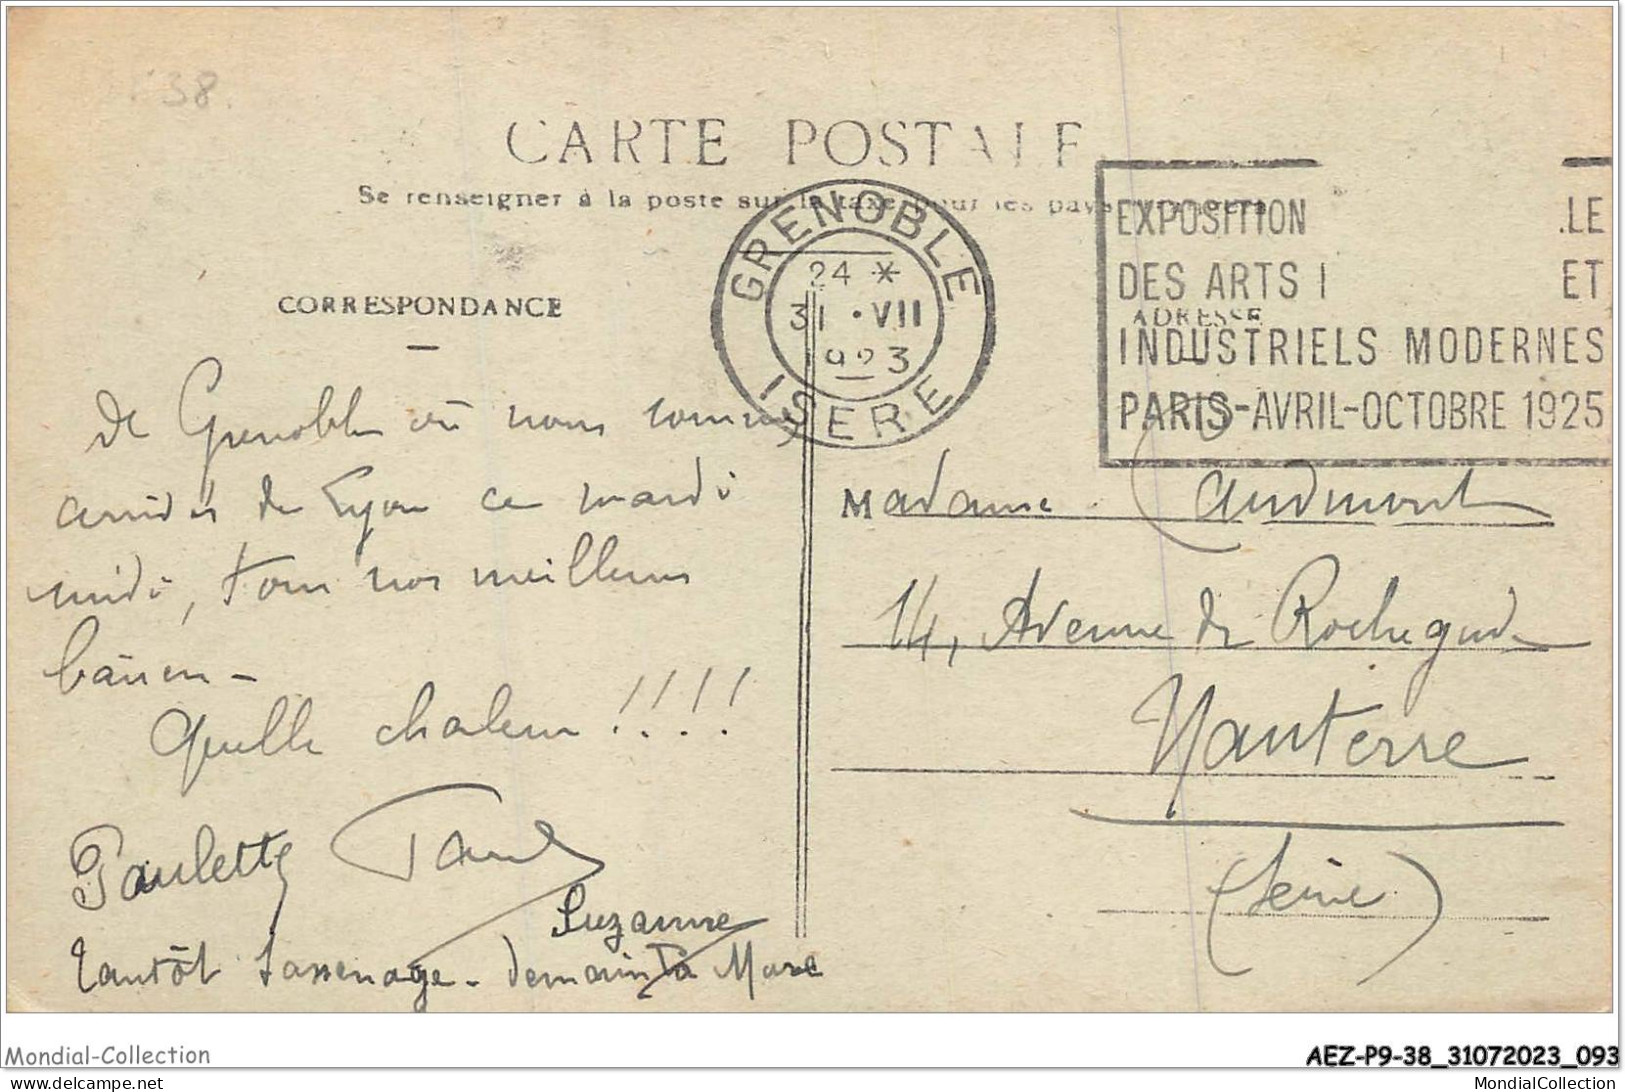 38.
CARTE POSTALE
Se renseigner à la poste sur la taxe pour les pays
GRENOBLE
24 *
31 • VII
1923
ISERE
EXPOSITION LE
DES ARTS ET
INDUSTRIELS MODERNES
PARIS-AVRIL-OCTOBRE 1925
CORRESPONDANCE
ADRESSE
de Grenoble où nous sommes
arrivés de Lyon ce mardi
midi, tous nos meilleurs
baisers -
Quelle chaleur !!!!
Paulette Paul
Suzanne
Tantôt Sassenage - demain La Mure
Madame
14, Avenue de Rochegude
Nanterre
(Seine)
Mondial-Collection
delcampe.net
AEZ-P9-38_31072023_093
MondialCollection